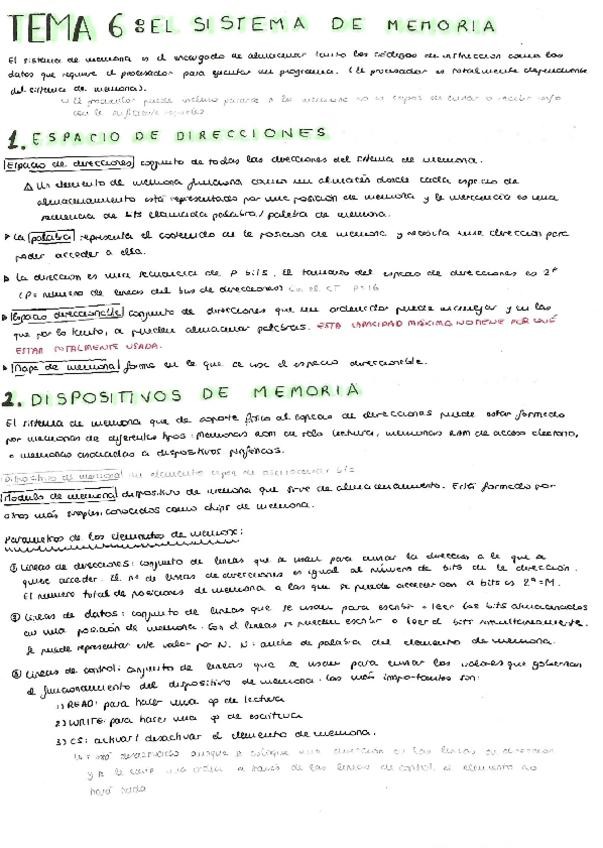 TEMA 6: EL SISTEMA DE MEMORIA
El sistema de memoria es el encargado de almacenar tanto los códigos de instrucción como los
datos que requiere el procesador para ejecutar un programa. (El procesador es totalmente dependiente
del sistema de memoria).
el procesador puede incluso pararse si la memoria no es capaz de enviar o recibir info
con la suficiente
1. ESPACIO DE DIRECCIONES
Espacio de direcciones conjunto de todas las direcciones del sistema de memoria.
Un elemento de memoria funciona como un almacén donde cada espacio de
almacenamiento está representado por una posición de memoria y la mercancía es una
secuencia de bits llamada palabra/palabra de memoria.
La palabra representa el contenido de la posición de memoria y necesita una dirección para
poder acceder a ella.
La dirección es una secuencia de P bits. El tamaño del espacio de direcciones es 2^P
(P = número de líneas del bus de direcciones) en el CT P=16
Espacio direccionable conjunto de direcciones que un ordenador puede manejar y en las
que por lo tanto, se pueden almacenar palabras. ESTA CAPACIDAD MÁXIMA NO TIENE POR QUÉ
ESTAR TOTALMENTE USADA.
Mapa de memoria forma en la que se usa el espacio direccionable.
2. DISPOSITIVOS DE MEMORIA
El sistema de memoria que da soporte físico al espacio de direcciones puede estar formado
por memorias de diferentes tipos: Memorias ROM de sólo lectura, memorias RAM de acceso aleatorio,
o memorias asociadas a dispositivos periféricos.
Dispositivo de memoria un elemento capaz de almacenar bits
Módulo de memoria dispositivo de memoria que sirve de almacenamiento. Está formado por
otros más simples conocidos como chips de memoria.
Parámetros de los elementos de memoria:
① Líneas de direcciones: conjunto de líneas que se usan para enviar la dirección a la que se
quiere acceder. El nº de líneas de direcciones es igual al número de bits de la dirección.
El número total de posiciones de memoria a las que se puede acceder con a bits es 2^a = M.
② Líneas de datos: conjunto de líneas que se usan para escribir o leer los bits almacenados
en una posición de memoria. Con d líneas se pueden escribir o leer d bits simultáneamente.
Se puede representar este valor por N. N: ancho de palabra del elemento de memoria.
③ Líneas de control: conjunto de líneas que se usan para enviar los valores que gobiernan
el funcionamiento del dispositivo de memoria. Las más importantes son:
1) READ: para hacer una op de lectura
2) WRITE: para hacer una op de escritura
3) CS: activar/desactivar el elemento de memoria.
está desactivado aunque se coloque una dirección en las líneas de dirección
y se le envíe una orden a través de las líneas de control, el elemento no
hará nada